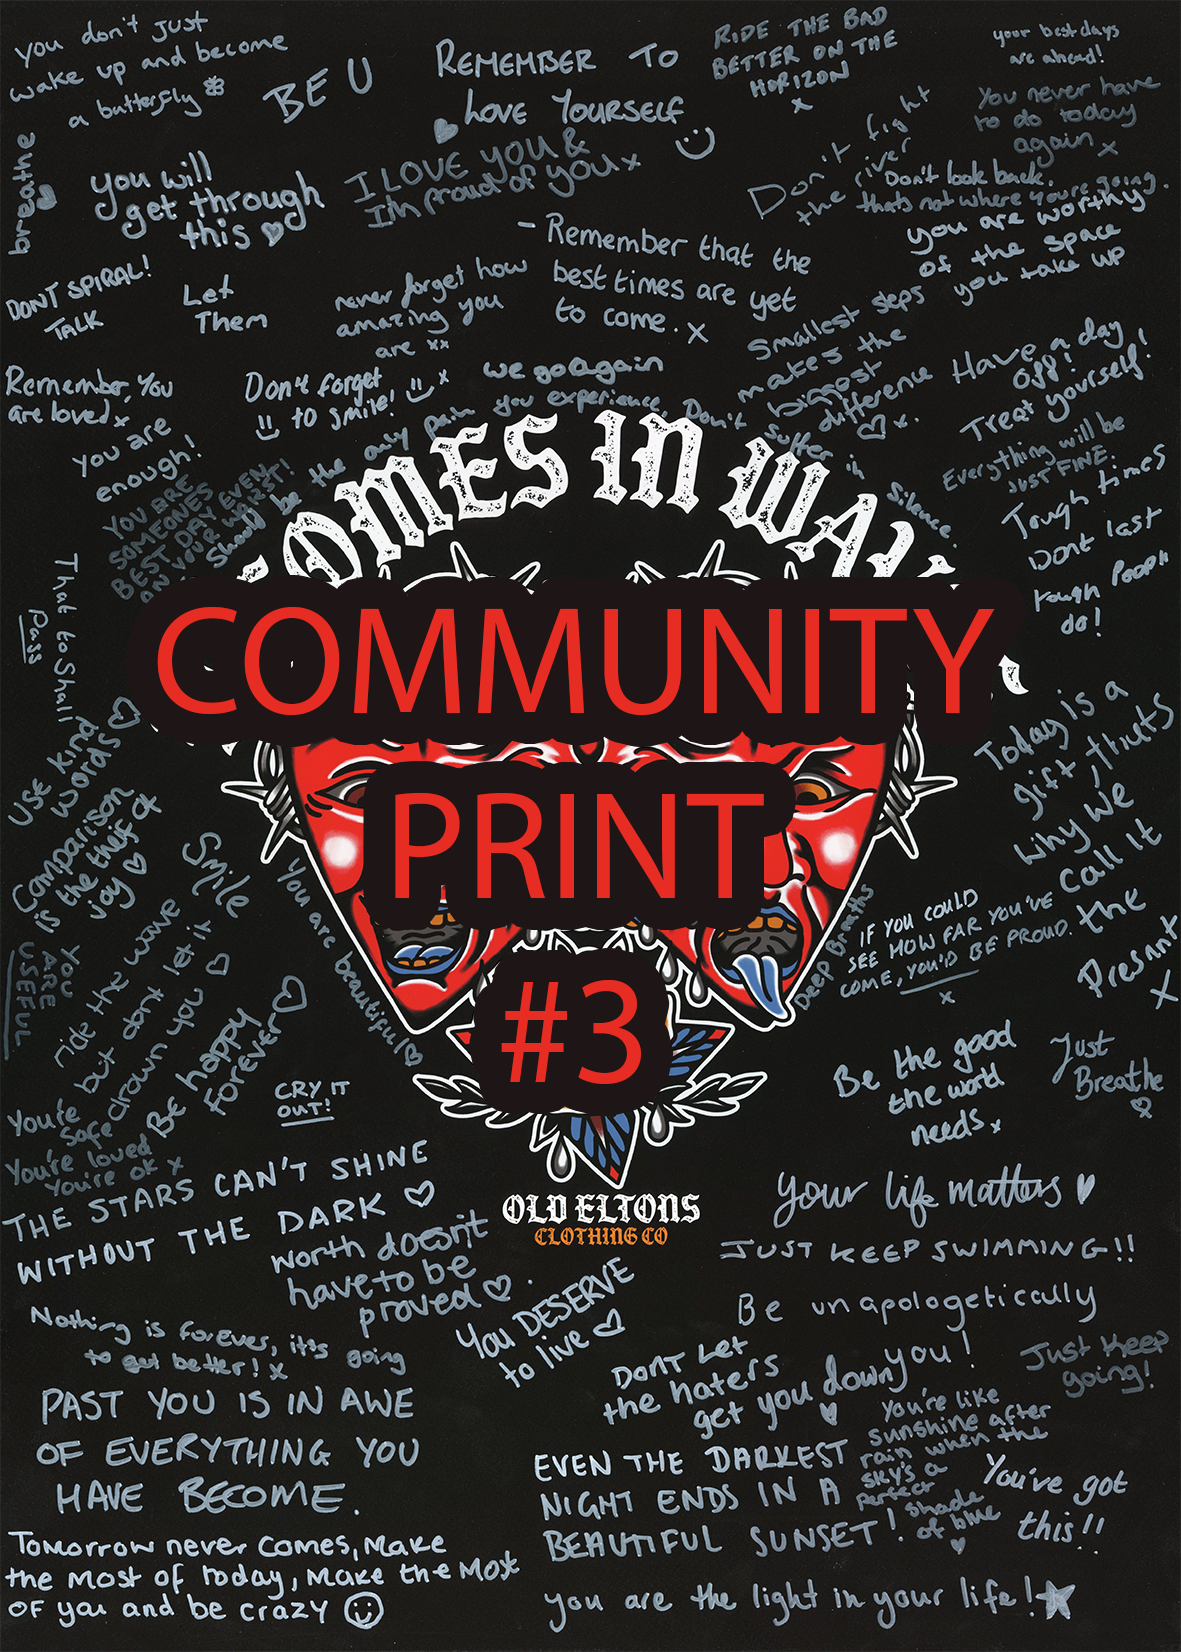 you don't just
wake up and become
a butterfly
BE U
REMEMBER TO
LOVE YOURSELF
RIDE THE BAD
BETTER ON THE
HORIZON
x
your best days
are ahead!
You never have
to do today
again x
breathe
you will
get through
this
I LOVE YOU &
I'm proud of you x
Don't fight
the river
Don't look back.
thats not where you're going.
you are worthy
of the space
you take up
- Remember that the
best times are yet
to come. x
DONT SPIRAL!
TALK
Let
Them
never forget how
amazing you
are xx
Smallest steps
makes the
biggest
difference
x.
Have a day
off!
Treat yourself!
Remember, you
are loved x
Don't forget
to smile! x
we go again
you are
enough!
YOU ARE
SOMEONES
BEST DAY EVEN
ON YOUR WORST!
Should be the only pain you experience. Don't suffer in silence.
Everything will be
JUST FINE.
Tough times
Dont last
tough People
do!
COMES IN WAV
That to Shall
Pass
COMMUNITY
PRINT
#3
Use kind
words
Comparison
is the thief of
joy
Smile
You are beautiful
YOU
ARE
USEFUL
ride the wave
but dont let it
drown you
Be happy
Forever
CRY IT
OUT!
You're
safe
You're loved
You're OK x
Today is a
gift, thats
why we
call it
the
Presnt
x
Deep Breaths
IF YOU COULD
SEE HOW FAR YOU'VE
COME, YOU'D BE PROUD.
x
Be the good
the world
needs x
Just
Breathe
THE STARS CAN'T SHINE
WITHOUT THE DARK
OLD ELTONS
CLOTHING CO
your life matters
JUST KEEP SWIMMING!!
worth doesn't
have to be
proved
You DESERVE
to live
Be unapologetically
you!
Nothing is forever, its going
to get better! x
DONT LET
the haters
get you down
Just keep
going!
PAST YOU IS IN AWE
OF EVERYTHING YOU
HAVE BECOME.
You're like
sunshine after
rain when the
sky's a
perfect
shade
of blue
EVEN THE DARKEST
NIGHT ENDS IN A
BEAUTIFUL SUNSET!
You've got
this!!
Tomorrow never comes, make
the most of today, make the most
of you and be crazy
you are the light in your life!